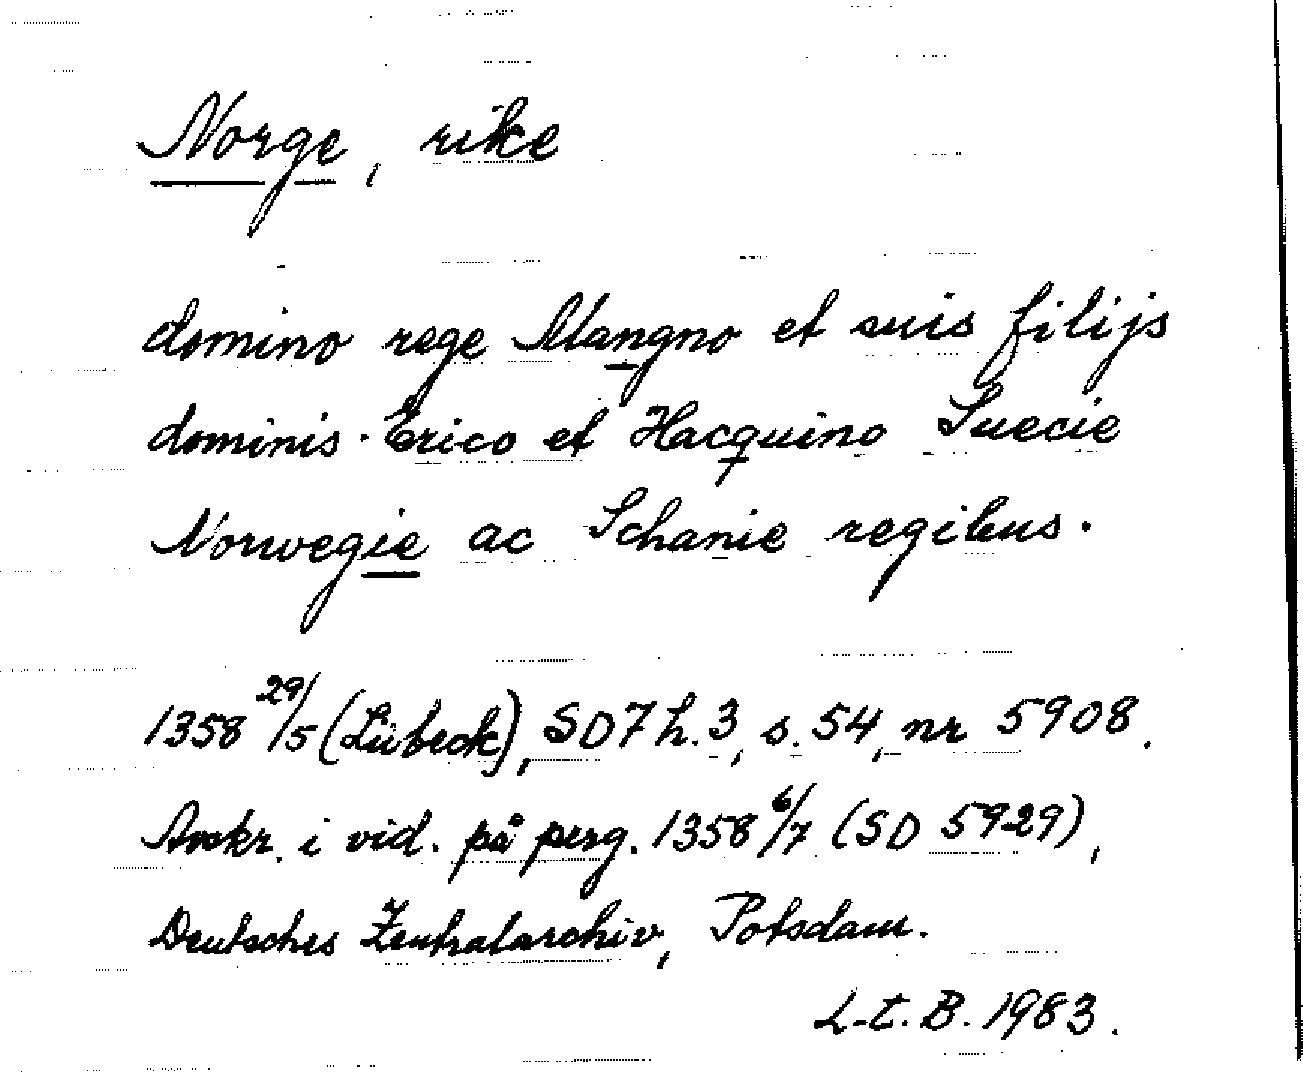 Norge, rike
domino rege Mangno et suis filijs
dominis. Erico et Hacquino Suecie
Norwegie ac Schanie regibus.
1358 29/5 (Lübeck), SD7 h. 3, s. 54, nr 5908.
Avskr. i vid. på perg. 1358 6/7 (SD 5929),
Deutsches Zentralarchiv, Potsdam.
L-t. B. 1983.